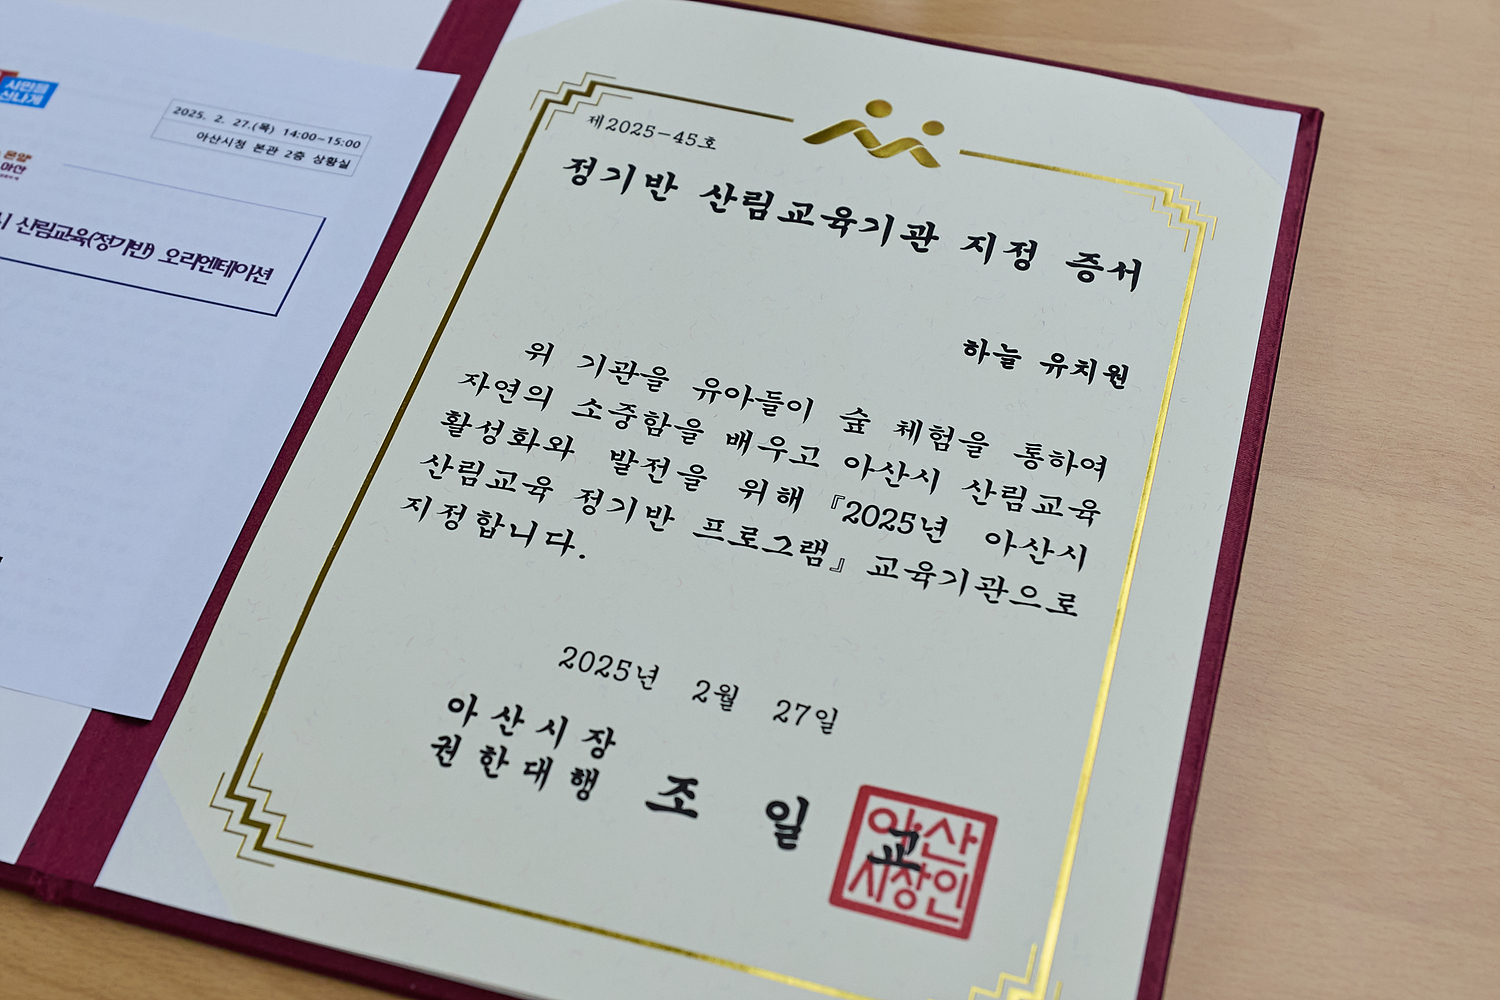 시민을
신나게
2025. 2. 27.(목) 14:00~15:00
아산시청 본관 2층 상황실
온양
아산
시 산림교육(정기반) 오리엔테이션
제2025-45호
정기반 산림교육기관 지정 증서
하늘 유치원
위 기관을 유아들이 숲 체험을 통하여
자연의 소중함을 배우고 아산시 산림교육
활성화와 발전을 위해 『2025년 아산시
산림교육 정기반 프로그램』 교육기관으로
지정합니다.
2025년 2월 27일
아산시장
권한대행 조 일 교
아산
시장인